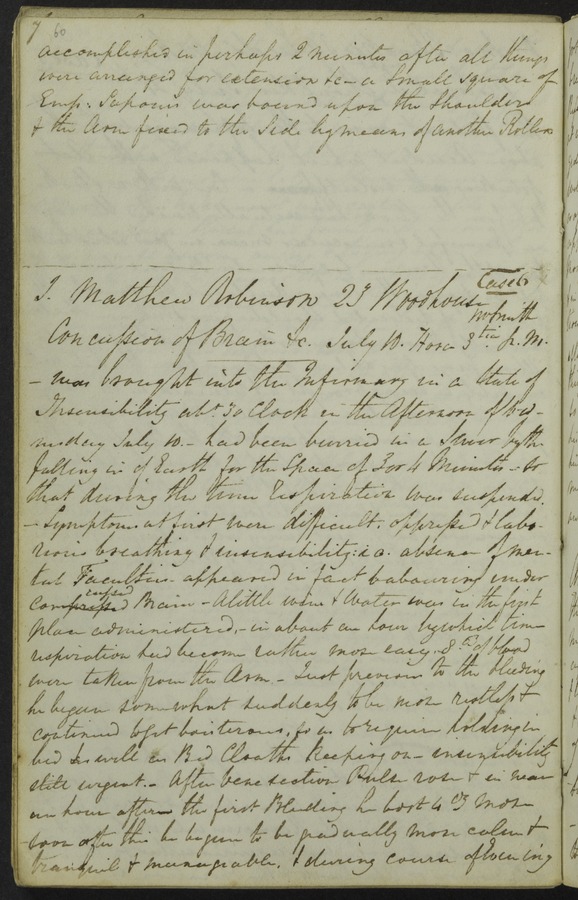 7 60
accomplished in perhaps 2 minutes after all things
were arranged for extension &c - a small square of
Emp: Saponis was bound upon the Shoulders
& the Arm fixed to the Side by means of another Roller
Case 6
J. Matthew Robinson 23 Woodhouse
Concussion of Brain &c. July 10. Hora 3 tia P. M.
- was brought into the Infirmary in a State of
Insensibility abt. 3 oClock in the Afternoon of Wed-
nesday July 10. - had been burried in a Sewer by the
falling in of Earth for the Space of 3 or 4 Minutes - So
that during the time Respiration was suspended.
- Symptoms at first were difficult. oppressed & labo-
rious breathing & insensibility i.e. absence of men-
tal Faculties - appeared in fact labouring under
Brain - A little wine & Water was in the first
place administered, - in about an hour by which time
respiration had become rather more easy. 8 of blood
were taken from the Arm. - Just previous to the bleeding
he began somewhat suddenly to be more restless &
continued to get boisterous, so as to require holding in
bed as well as Bed Cloaths keeping on - insensibility
still urgent. - After venesection Pulse rose & in near
an hour after the first Bleeding he lost 4 more
soon after this he began to be gradually more calm &
tranquil & manageable. & during course of evening